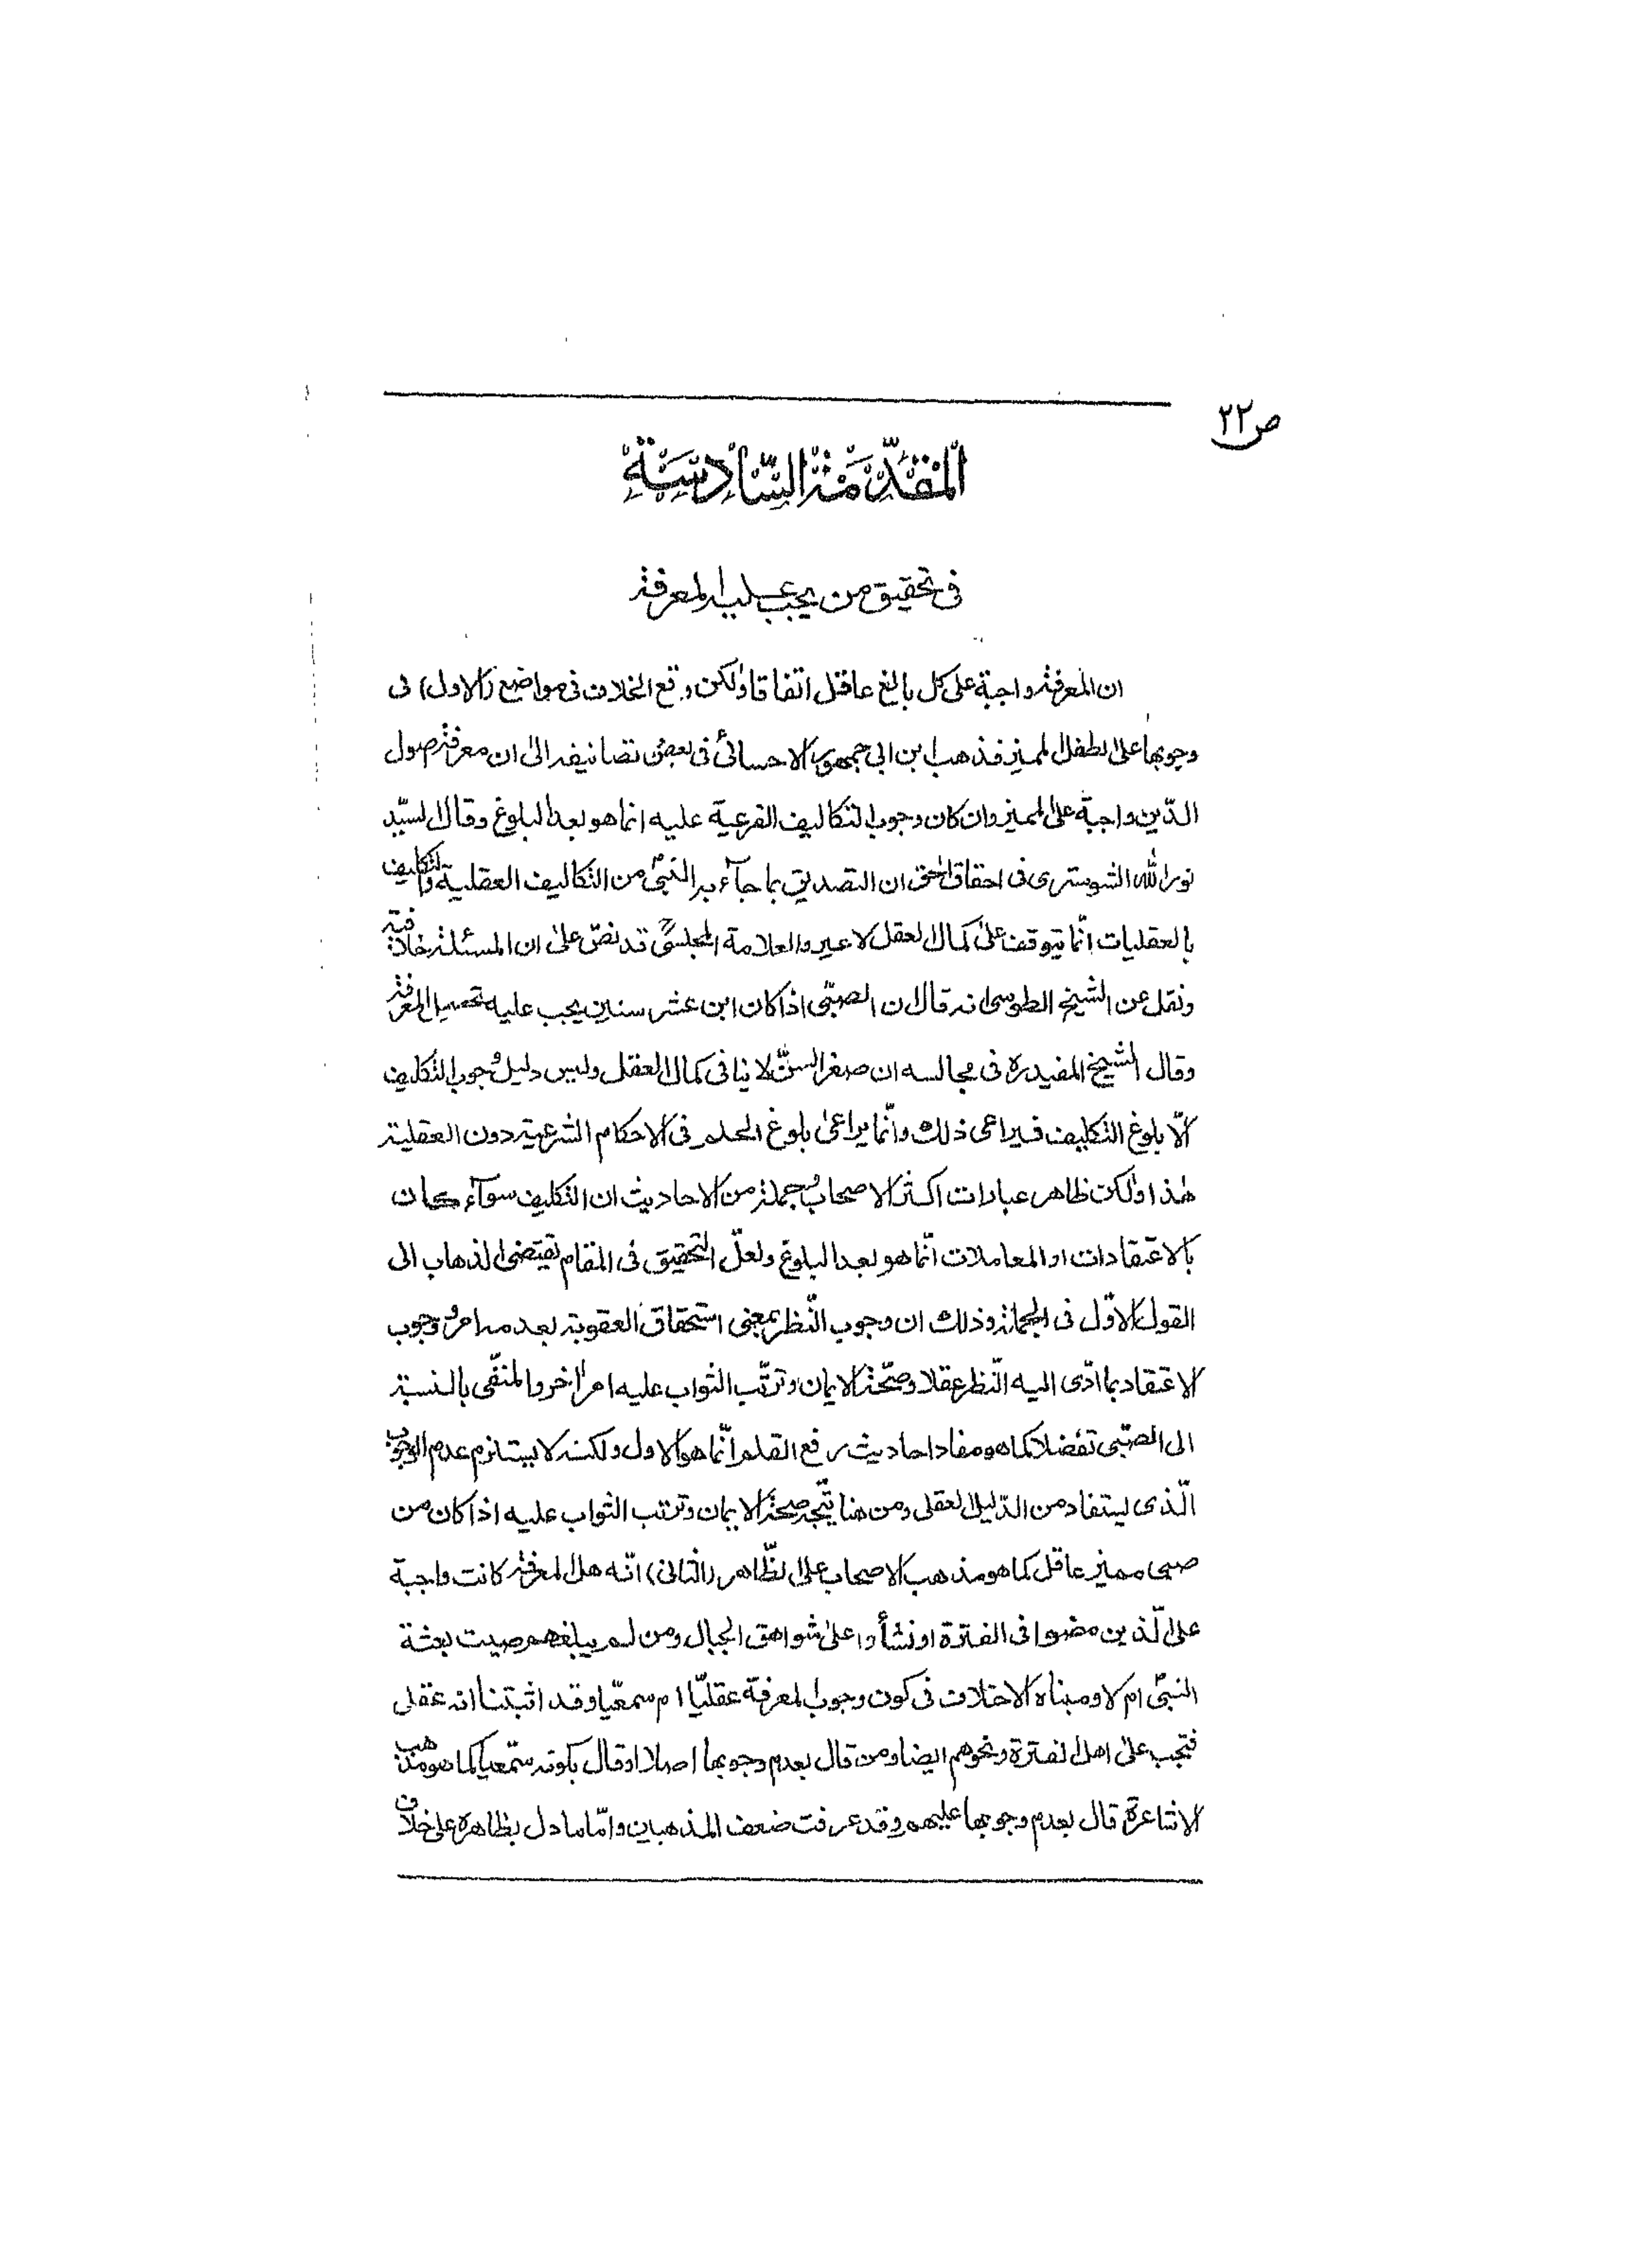 ص ٢٢
المقدمة السادسة
فى تحقيق من يجب عليه المعرفة
ان المعرفة واجبة على كل بالغ عاقل اتفاقا ولكن وقع الخلاف فى مواضع (الاول) فى
وجوبها على الطفل المميز فذهب ابن ابى جمهور الاحسائى فى بعض تصانيفه الى ان معرفة صول
الدّين واجبة على المميز وان كان وجوب التكاليف الفرعية عليه انما هو بعد البلوغ وقال السيّد
نور الله الشوسترى فى احقاق الحق ان التصديق بما جآء به النبىّ من التكاليف العقلية والتكليف
بالعقليات انّما يتوقف على كمال العقل لا غير والعلامة المجلسىّ قد نصّ على ان المسئلة خلافية
ونقل عن الشيخ الطوسى انه قال ان الصبىّ اذا كان ابن عشر سنين يجب عليه تحصيل المعرفة
وقال الشيخ المفيد ره فى مجالسه ان صغر السنّ لا ينافى كمال العقل وليس دليل وجوب التكليف
الّا بلوغ التكليف فيراعى ذلك وانّما يراعى بلوغ الحلم فى الاحكام الشرعية دون العقلية
هذا ولكن ظاهر عبارات اكثر الاصحاب وجملة من الاحاديث ان التكليف سوآء كان
بالاعتقادات او المعاملات انّما هو بعد البلوغ ولعلّ التحقيق فى المقام يقتضى الذهاب الى
القول الاوّل فى الجملة وذلك ان وجوب النّظر بمعنى استحقاق العقوبة بعدمه امر ووجوب
الاعتقاد بما ادّى اليه النّظر عقلا وصحّة الايمان وترتّب الثواب عليه امر اٰخر والمنفّى بالنسبة
الى الصبّى تفضلا كما هو مفاد احاديث رفع القلم انّما هو الاول ولكنه لا يستلزم عدم الوجوب
الّذى يستفاد من الدّليل العقلى ومن هنا يتّجه صحة الايمان وترتب الثواب عليه اذا كان من
صبى مميز عاقل كما هو مذهب الاصحاب على الظّاهر (الثانى) انّه هل المعرفة كانت واجبة
على الّذين مضوا فى الفترة او نشأوا على شواهق الجبال ومن لم يبلغهم صيت بعثة
النبىّ ام لا ومبناه الاختلاف فى كون وجوب المعرفة عقليّا ام سمعيّا وقد اثبتنا انه عقلى
فتجب على اهل الفترة ونحوهم ايضا ومن قال بعدم وجوبها اصلا او قال بكونه سمّعيا كما هو مذهب
الاشاعرة قال بعدم وجوبها عليهم وقد عرفت ضعف المذهبين وامّا ما دل بظاهره على خلاف